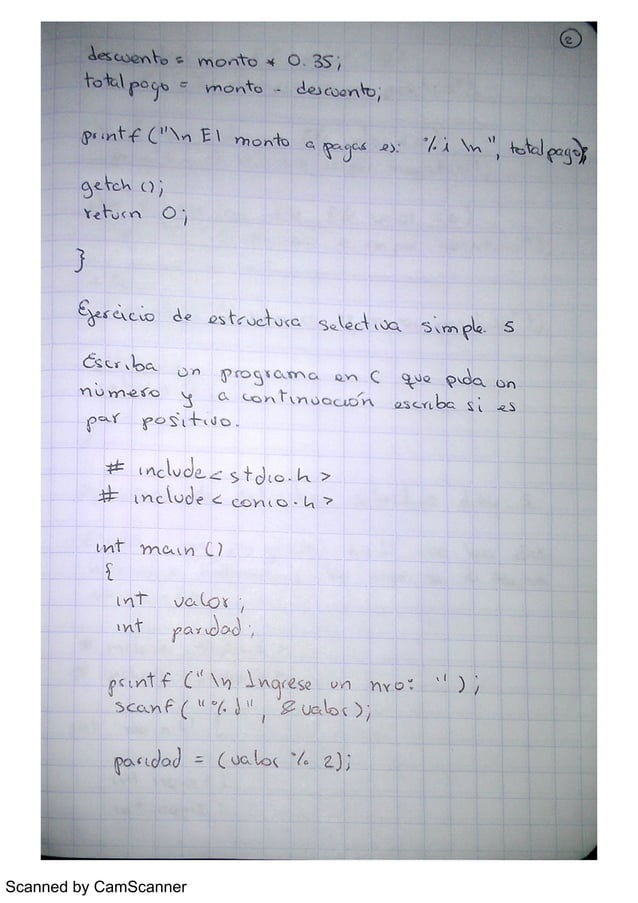 2
descuento = monto * 0.35;
totalpago = monto - descuento;
printf ("\n El monto a pagar es: %i \n", totalpago);
getch ();
return 0;
}
Ejercicio de estructura selectiva simple. 5
Escriba un programa en C que pida un
número y a continuación escriba si es
par positivo.
# include < stdio.h >
# include < conio.h >
int main ()
{
int valor;
int paridad;
printf ("\n Ingrese un nro: ");
scanf ("%d", &valor);
paridad = (valor % 2);
Scanned by CamScanner